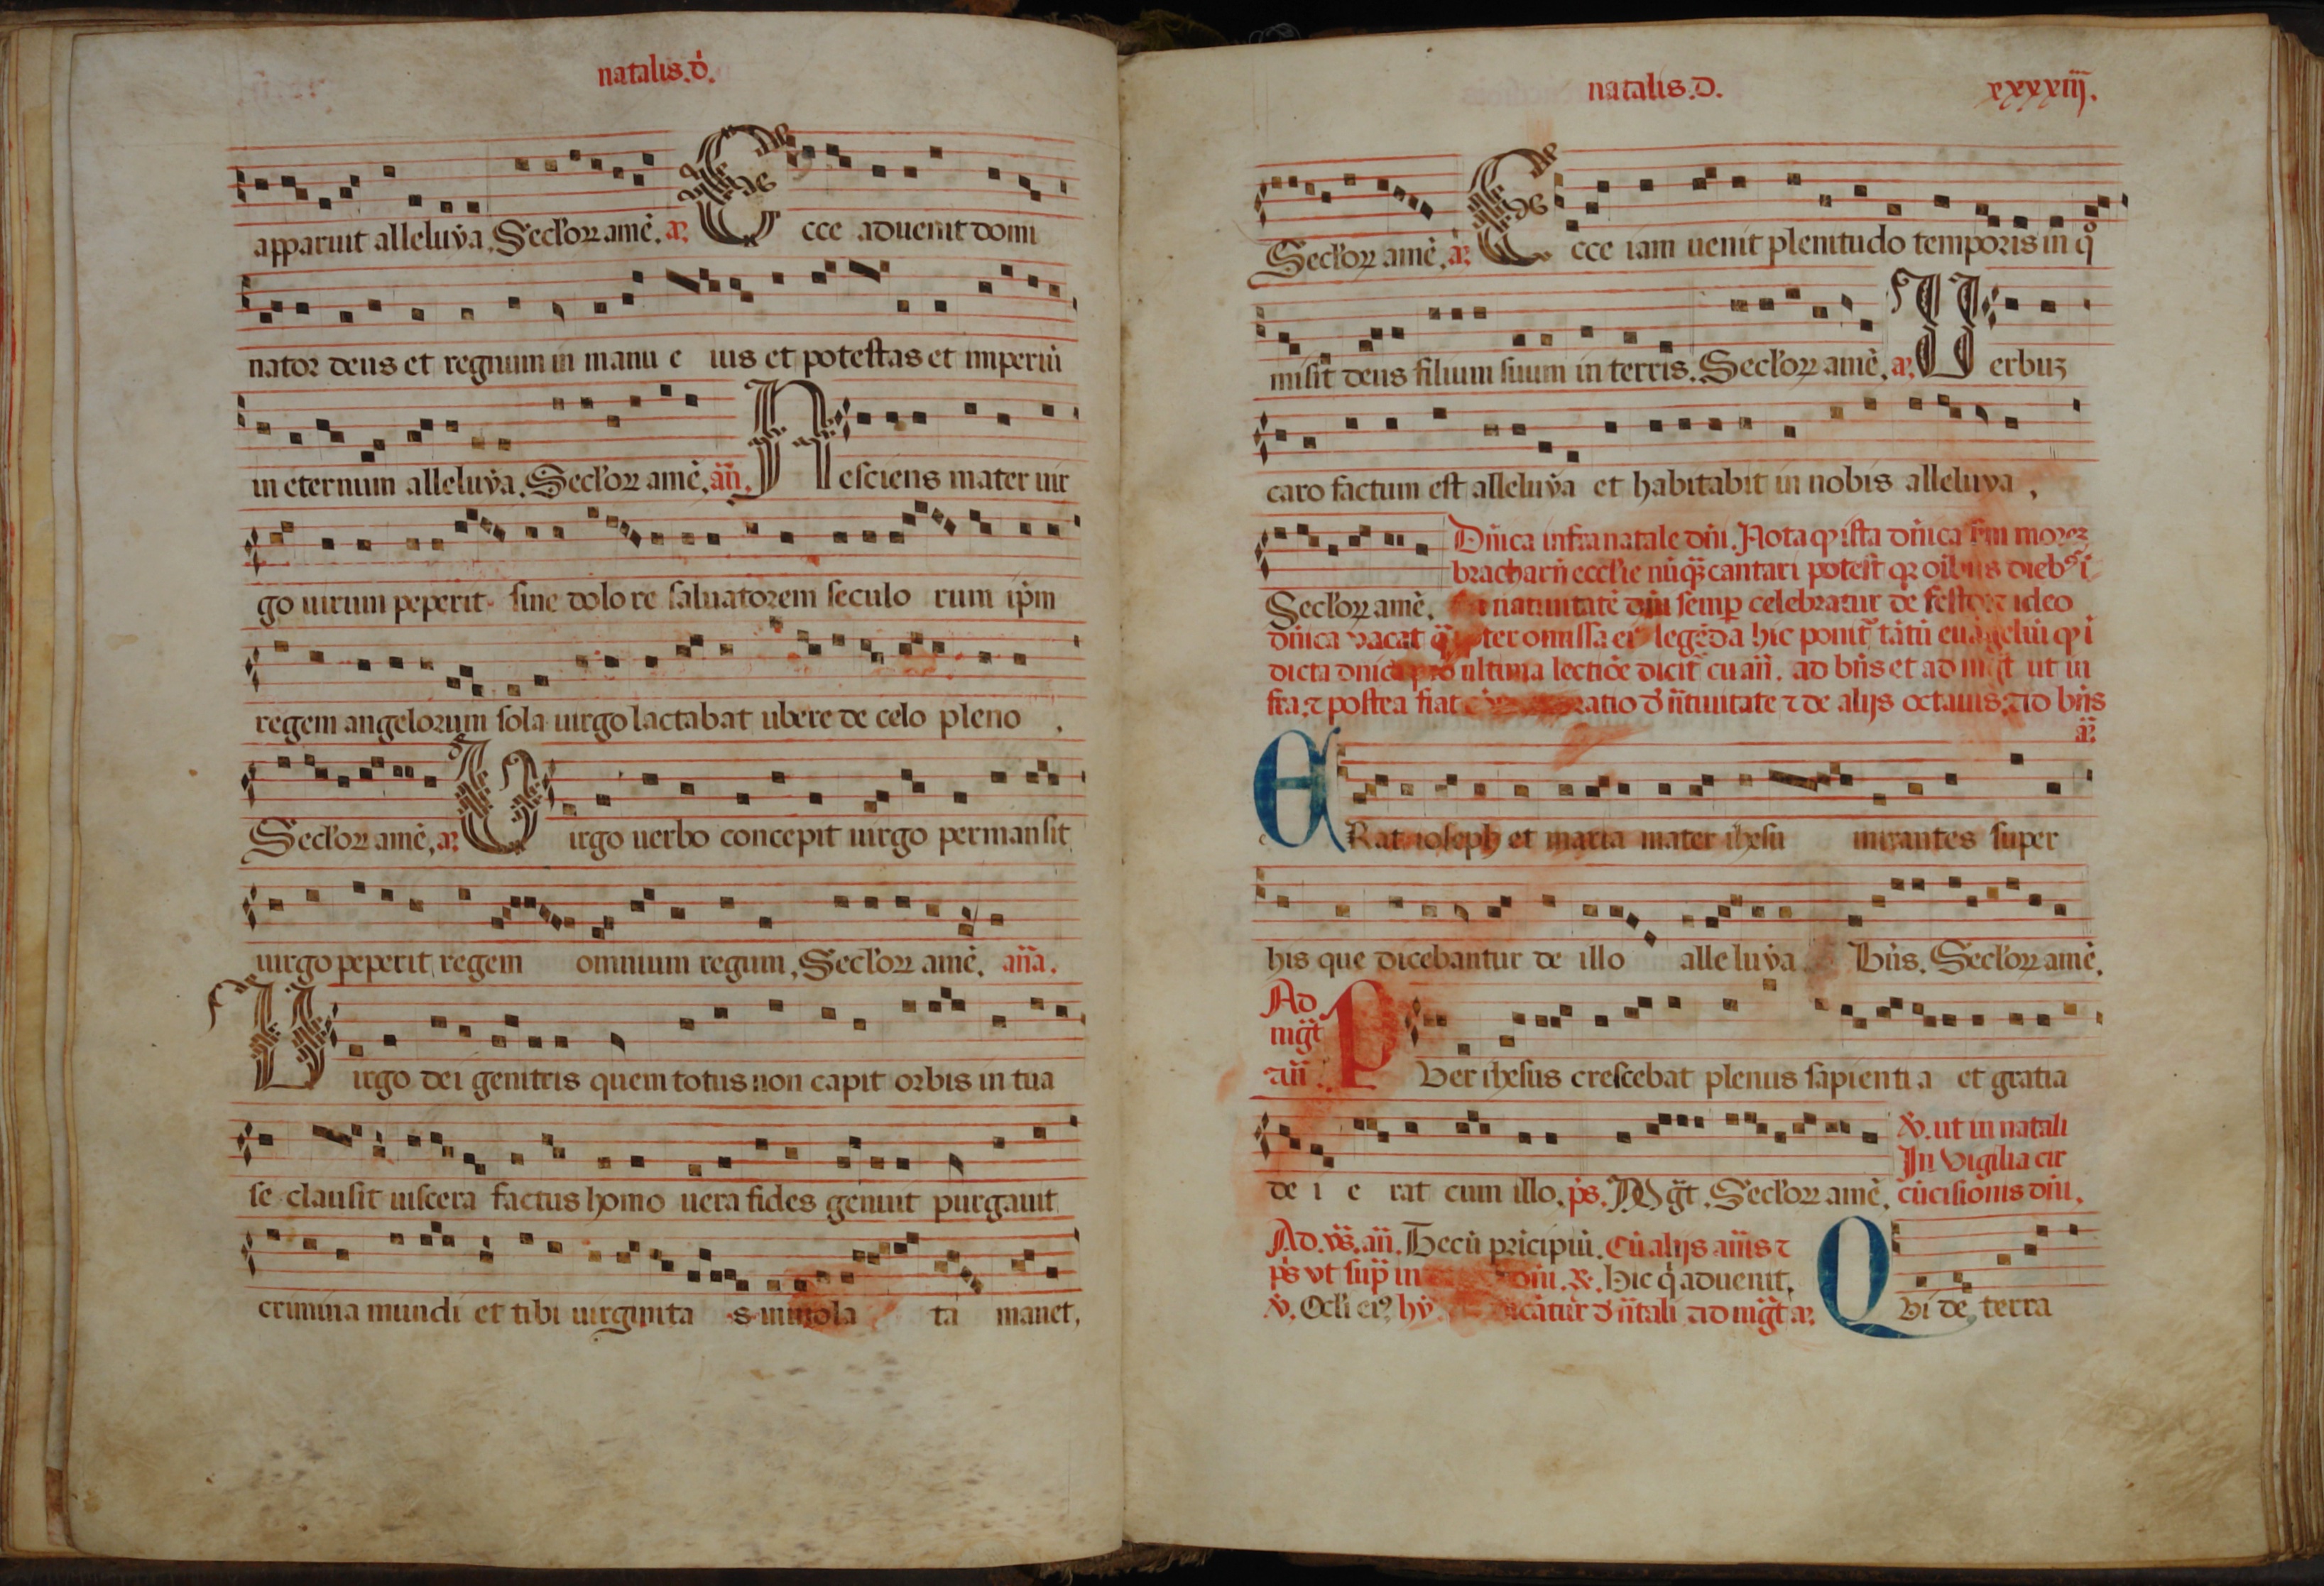 natalis.d̓.
apparuit alleluya. Secl'oꝝ amē. a.
Ecce aduenit domi
nator deus et regnum in manu e ius et potestas et imperiū
in eternum alleluya. Secl'oꝝ amē. an̄.
Nesciens mater uir
go uirum peperit sine dolo re saluatorem seculo rum ip̄m
regem angelorum sola uirgo lactabat ubere de celo pleno .
Secl'oꝝ amē. a.
Uirgo uerbo concepit uirgo permansit
uirgo peperit regem omnium regum. Secl'oꝝ amē. an̄a.
Uirgo dei genitris quem totus non capit orbis in tua
se clausit uiscera factus homo uera fides genuit purgauit
crimina mundi et tibi uirginita s inuiola ta manet.
natalis.d.
xxxxiij.
Secl'oꝝ amē. a.
Ecce iam uenit plenitudo temporis in qͦ
misit deus filium suum in terris. Secl'oꝝ amē. a.
Uerbuꝫ
caro factum est alleluya et habitabit in nobis alleluya .
Secl'oꝝ amē.
Dn̄ica infra natale dn̄i. Nota ꝙ ista dn̄ica
bracharn̄ eccl'ie nūq̄ȝ cantari potest qꝛ dieb⁹ ī
natiuitatē dn̄i semꝑ celebratur de ideo
dn̄ica vacat omissa legēda hic ponit̄ tātū euāgeliū ꝙ ī
dicta ultima lectiōe dicit̄ cū an̄. ad bn̄s et ad ut in
fra. ⁊ postea fiat d̓ n̄tiuitate ⁊ de alijs octauis. ad bn̄s
a.
ERat ioseph et maria mater ihesu mirantes super
his que dicebantur de illo alleluya Bn̄s. Secl'oꝝ amē.
Ad
mḡt
an̄
PUer ihesus crescebat plenus sapienti a et gratia
de i e rat cum illo. ps. Mḡt. Secl'oꝝ amē.
v̓. ut in natali
In vigilia cir
cūcisionis dn̄i.
Ad. vs̄. an̄. Tecū prīcipiū. Cū alijs an̄is ⁊
ps̄ vt sup̄ in dn̄i. R. Hic q̇ aduenit.
v̓. Ocl'i ei⁹ hȳ d̓ n̄tali ad mḡt a.
QUi de terra